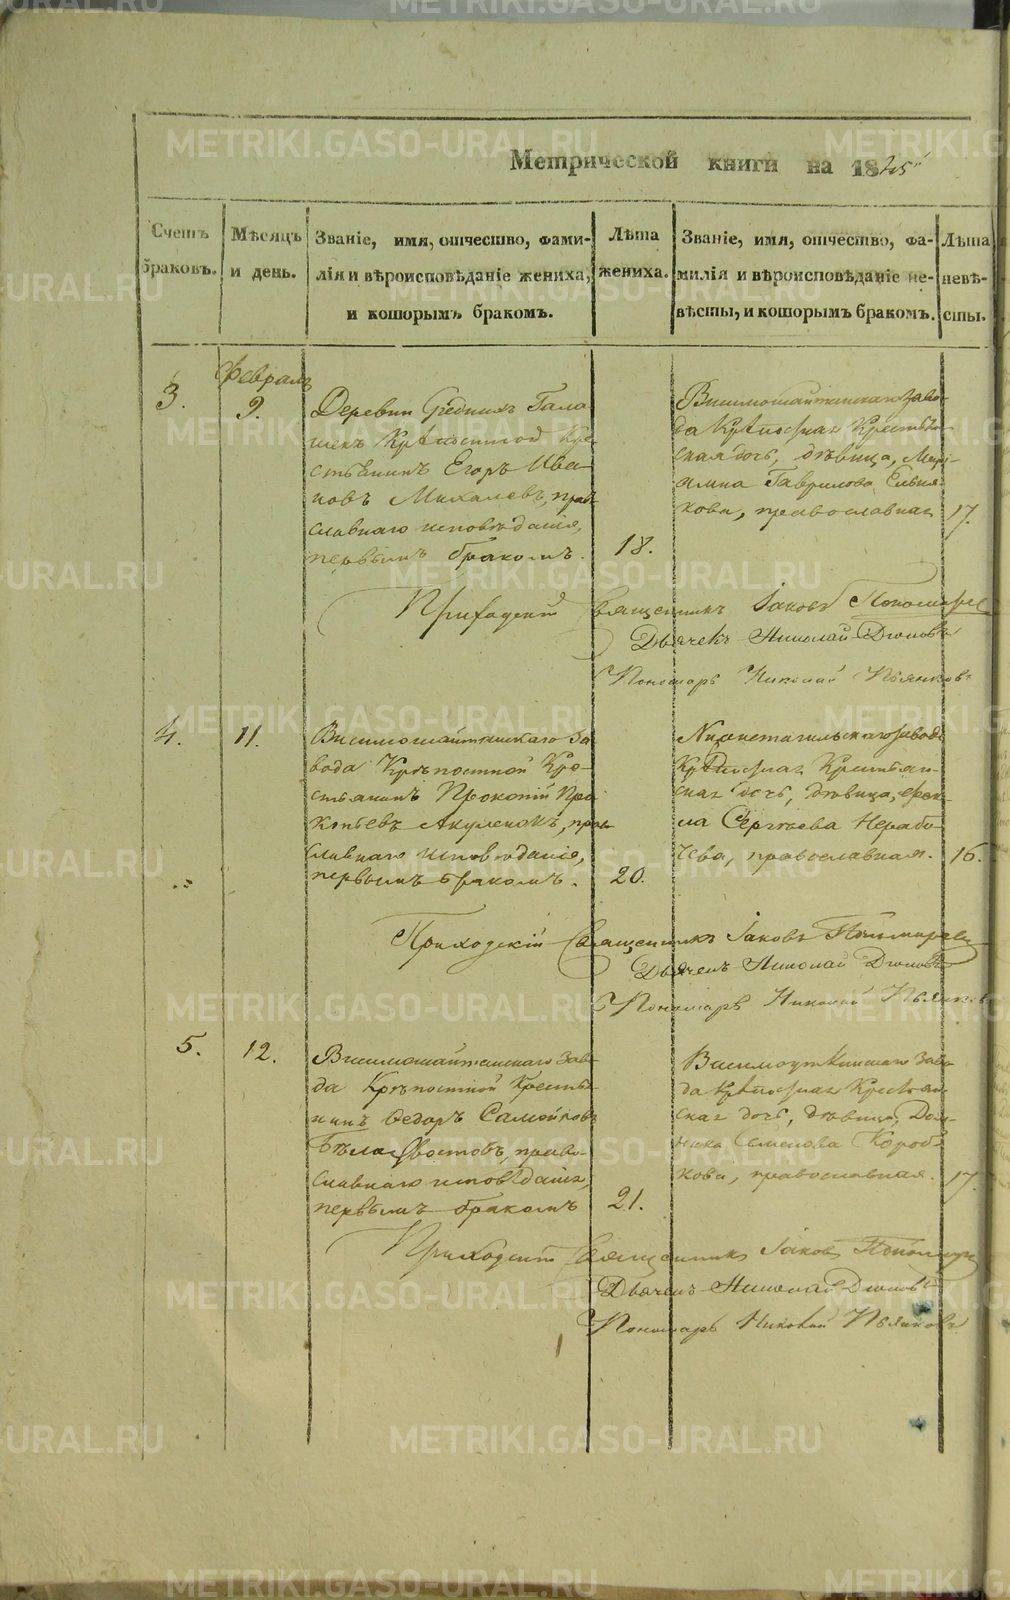 METRIKI.GASO-URAL.RU
Метрической книги на 1845
Счетъ браковъ.
Мѣсяцъ и день.
Званіе, имя, отчество, фами-
лія и вѣроисповѣданіе жениха,
и которымъ бракомъ.
Лѣта жениха.
Званіе, имя, отчество, фа-
милія и вѣроисповѣданіе не-
вѣсты, и которымъ бракомъ.
Лѣта невѣ-
сты.
Февраль
3.
9.
Деревни Среднихъ Гала
шекъ Крѣпостной Кре
стьянинъ Егоръ Ива
новъ Михалевъ, прав
славнаго исповѣданія,
первымъ бракомъ.
18.
Висимошайтанскаго заво-
да Крѣпостная Крестьян
ская дочь, дѣвица, Марі-
амна Гаврилова
кова, православная
17.
Приходскій Священникъ Іаковъ Пономарев
Дьячекъ Николай Дюковъ
Пономарь Николай Пьянковъ
4.
11.
Висимошайтанскаго за
вода Крѣпостной Кре-
стьянинъ Прокопій Про
копьевъ Акуленокъ, прав
славнаго исповѣданія,
первымъ бракомъ.
20.
Нижнетагильскаго завода
Крѣпостная Крестьян-
ская дочь, дѣвица, Фек-
ла Сергѣева Нерабо
чева, православная.
16.
Приходскій Священникъ Іаковъ Пономаревъ
Дьячекъ Николай Дюковъ
Пономарь Николай Пьянков
5.
12.
Висимошайтанскаго заво-
да Крѣпостной Крестья
нинъ Ѳедоръ Самойловъ
Бѣлохвостовъ, право-
славнаго исповѣданія,
первымъ бракомъ
21.
Висимоуткинскаго заво-
да Крѣпостная Крестьян-
ская дочь, дѣвица, Дом-
ника Семенова Короб
кова, православная.
17.
Приходскій Священникъ Іаковъ Пономар
Дьячекъ Николай Дюковъ
Пономарь Николай Пьянковъ